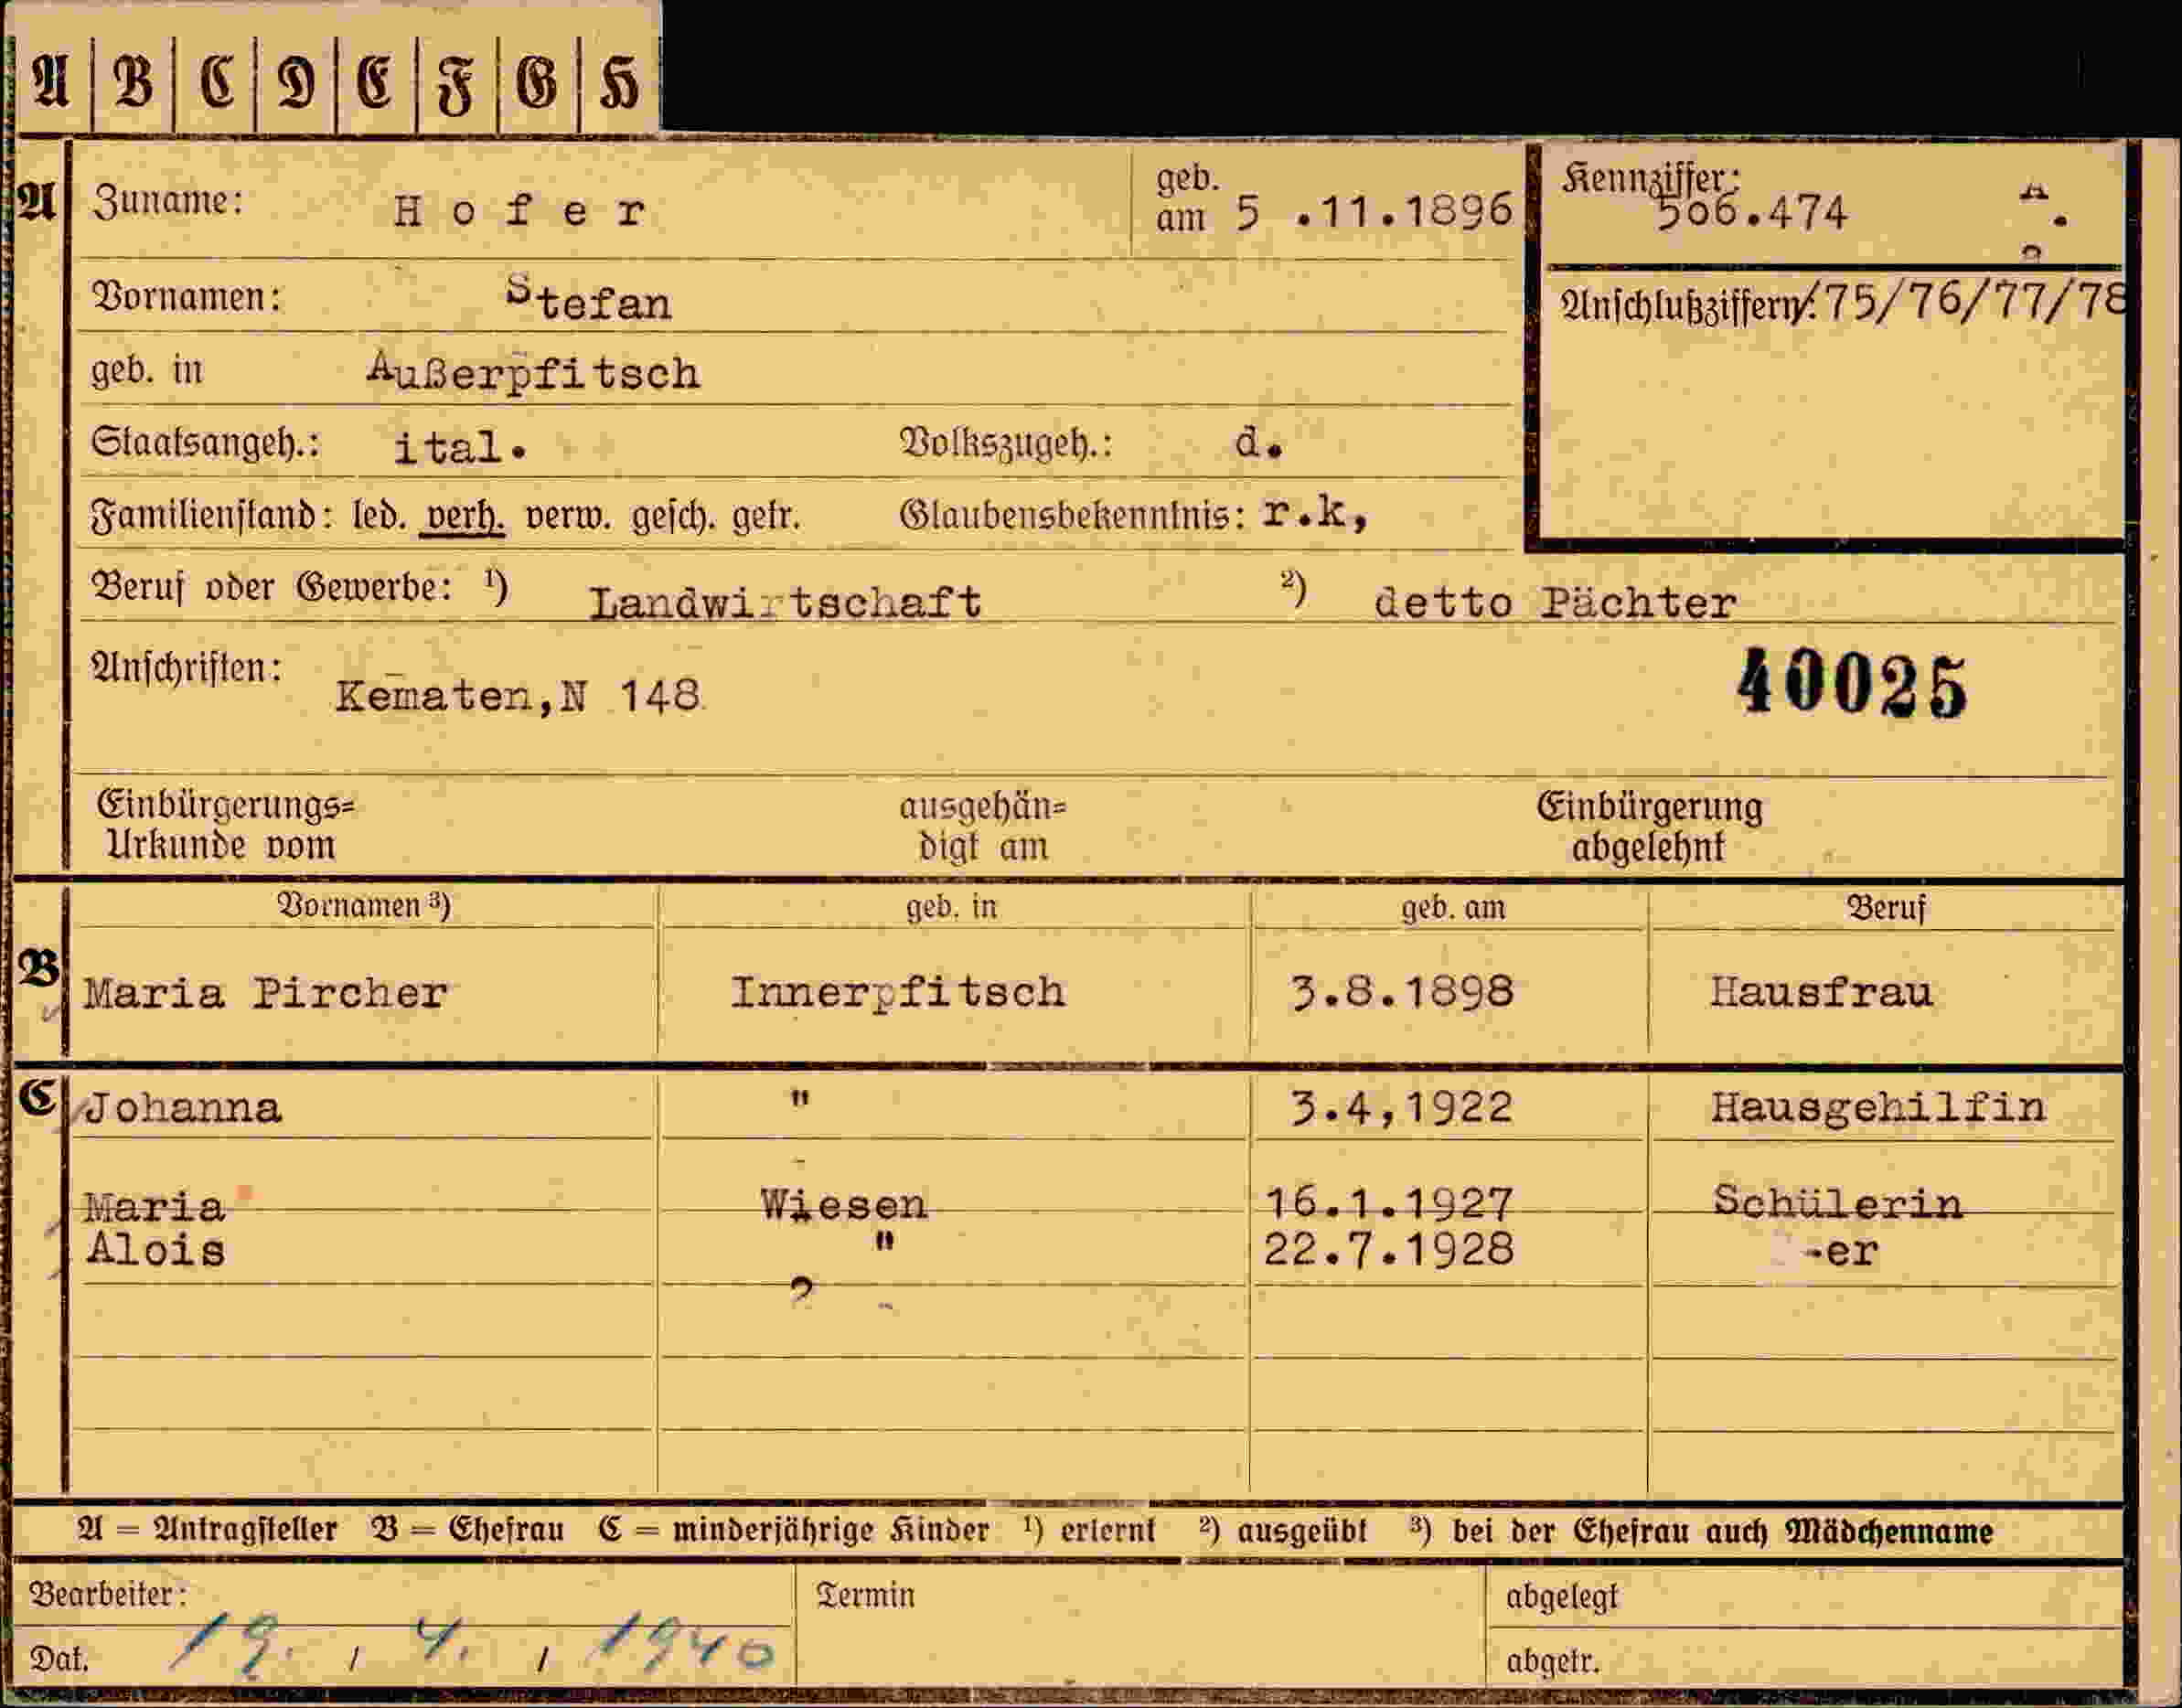 A B C D E F G H
A Zuname: Hofer geb. am 5 .11.1896 Kennziffer: 506.474
Vornamen: Stefan Anschlußziffern/:75/76/77/78
geb. in Außerpfitsch
Staatsangeh.: ital. Volkszugeh.: d.
Familienstand: led. verh. verw. gesch. getr. Glaubensbekenntnis: r.k,
Beruf oder Gewerbe: ¹) Landwirtschaft ²) detto Pächter
Anschriften: Kematen,N 148 40025
Einbürgerungs= ausgehän= Einbürgerung
Urkunde vom digt am abgelehnt
Vornamen ³) geb. in geb. am Beruf
B Maria Pircher Innerpfitsch 3.8.1898 Hausfrau
C Johanna " 3.4,1922 Hausgehilfin
Maria Wiesen 16.1.1927 Schülerin
Alois " 22.7.1928 -er
A = Antragsteller B = Ehefrau C = minderjährige Kinder ¹) erlernt ²) ausgeübt ³) bei der Ehefrau auch Mädchenname
Bearbeiter: Termin abgelegt
Dat. 19. / 4. / 1940 abgetr.